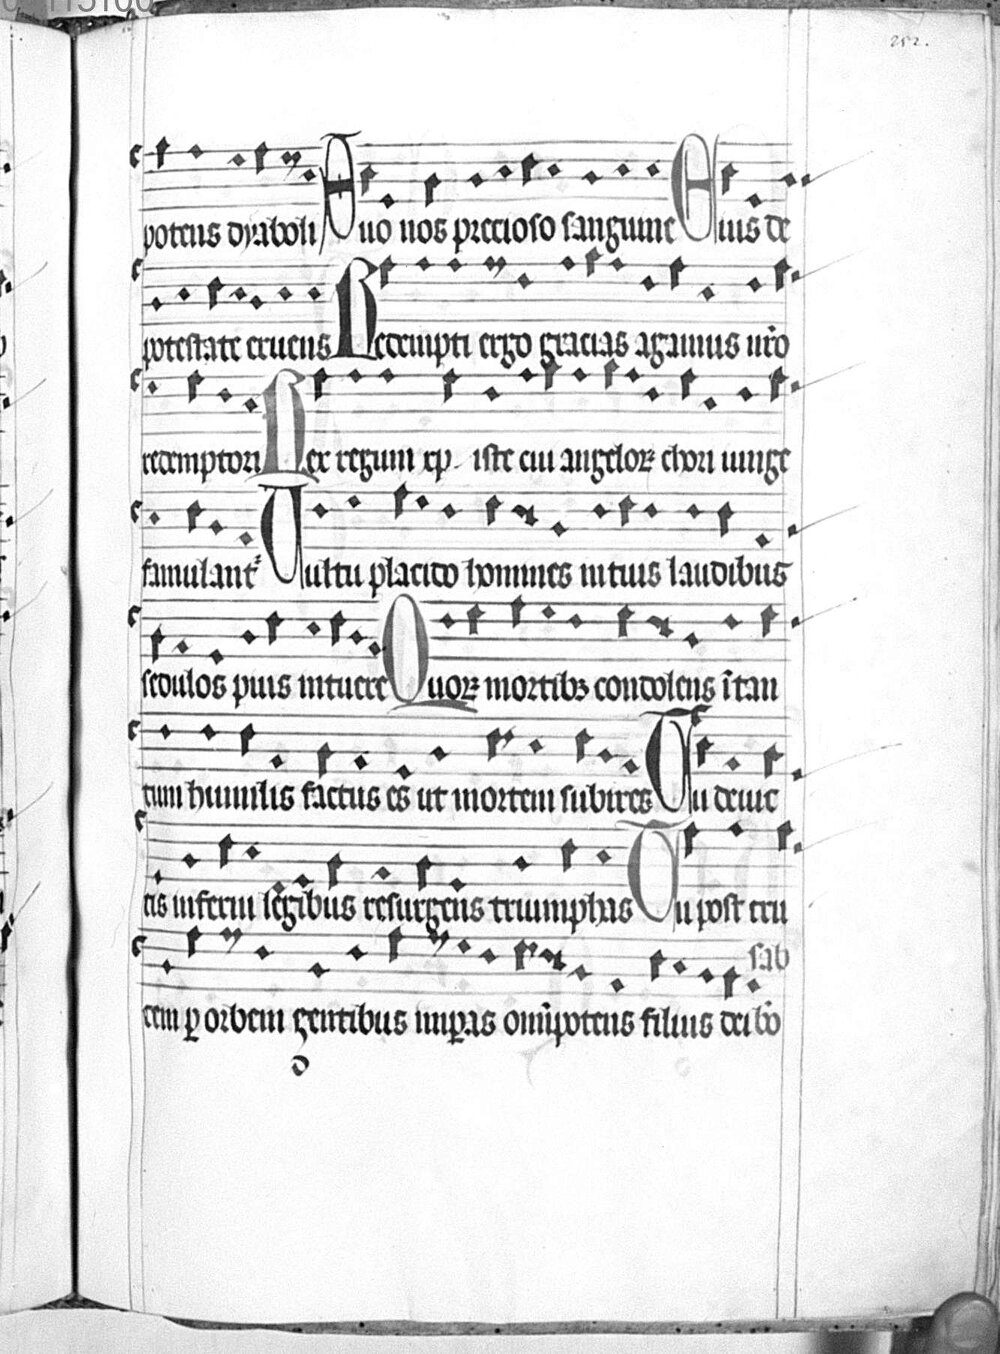 252.
potens dyaboli Quo nos precioso sanguine Eius de
potestate eruens Redempti ergo gracias agamus nr̄o
redemptori Rex regum xp̄e iste cui angeloꝝ chori iuige
famulantᷣ Vultu placido homines in tuis laudibus
sedulos pius intuere Quoꝝ mortibꝫ condolens ītan
tum humilis factus es ut mortem subires Tu deuic
tis inferni legibus resurgens triumphas Tu post cru
sab
cem ꝑ orbem gentibus imꝑas omīpotens filius dei bō